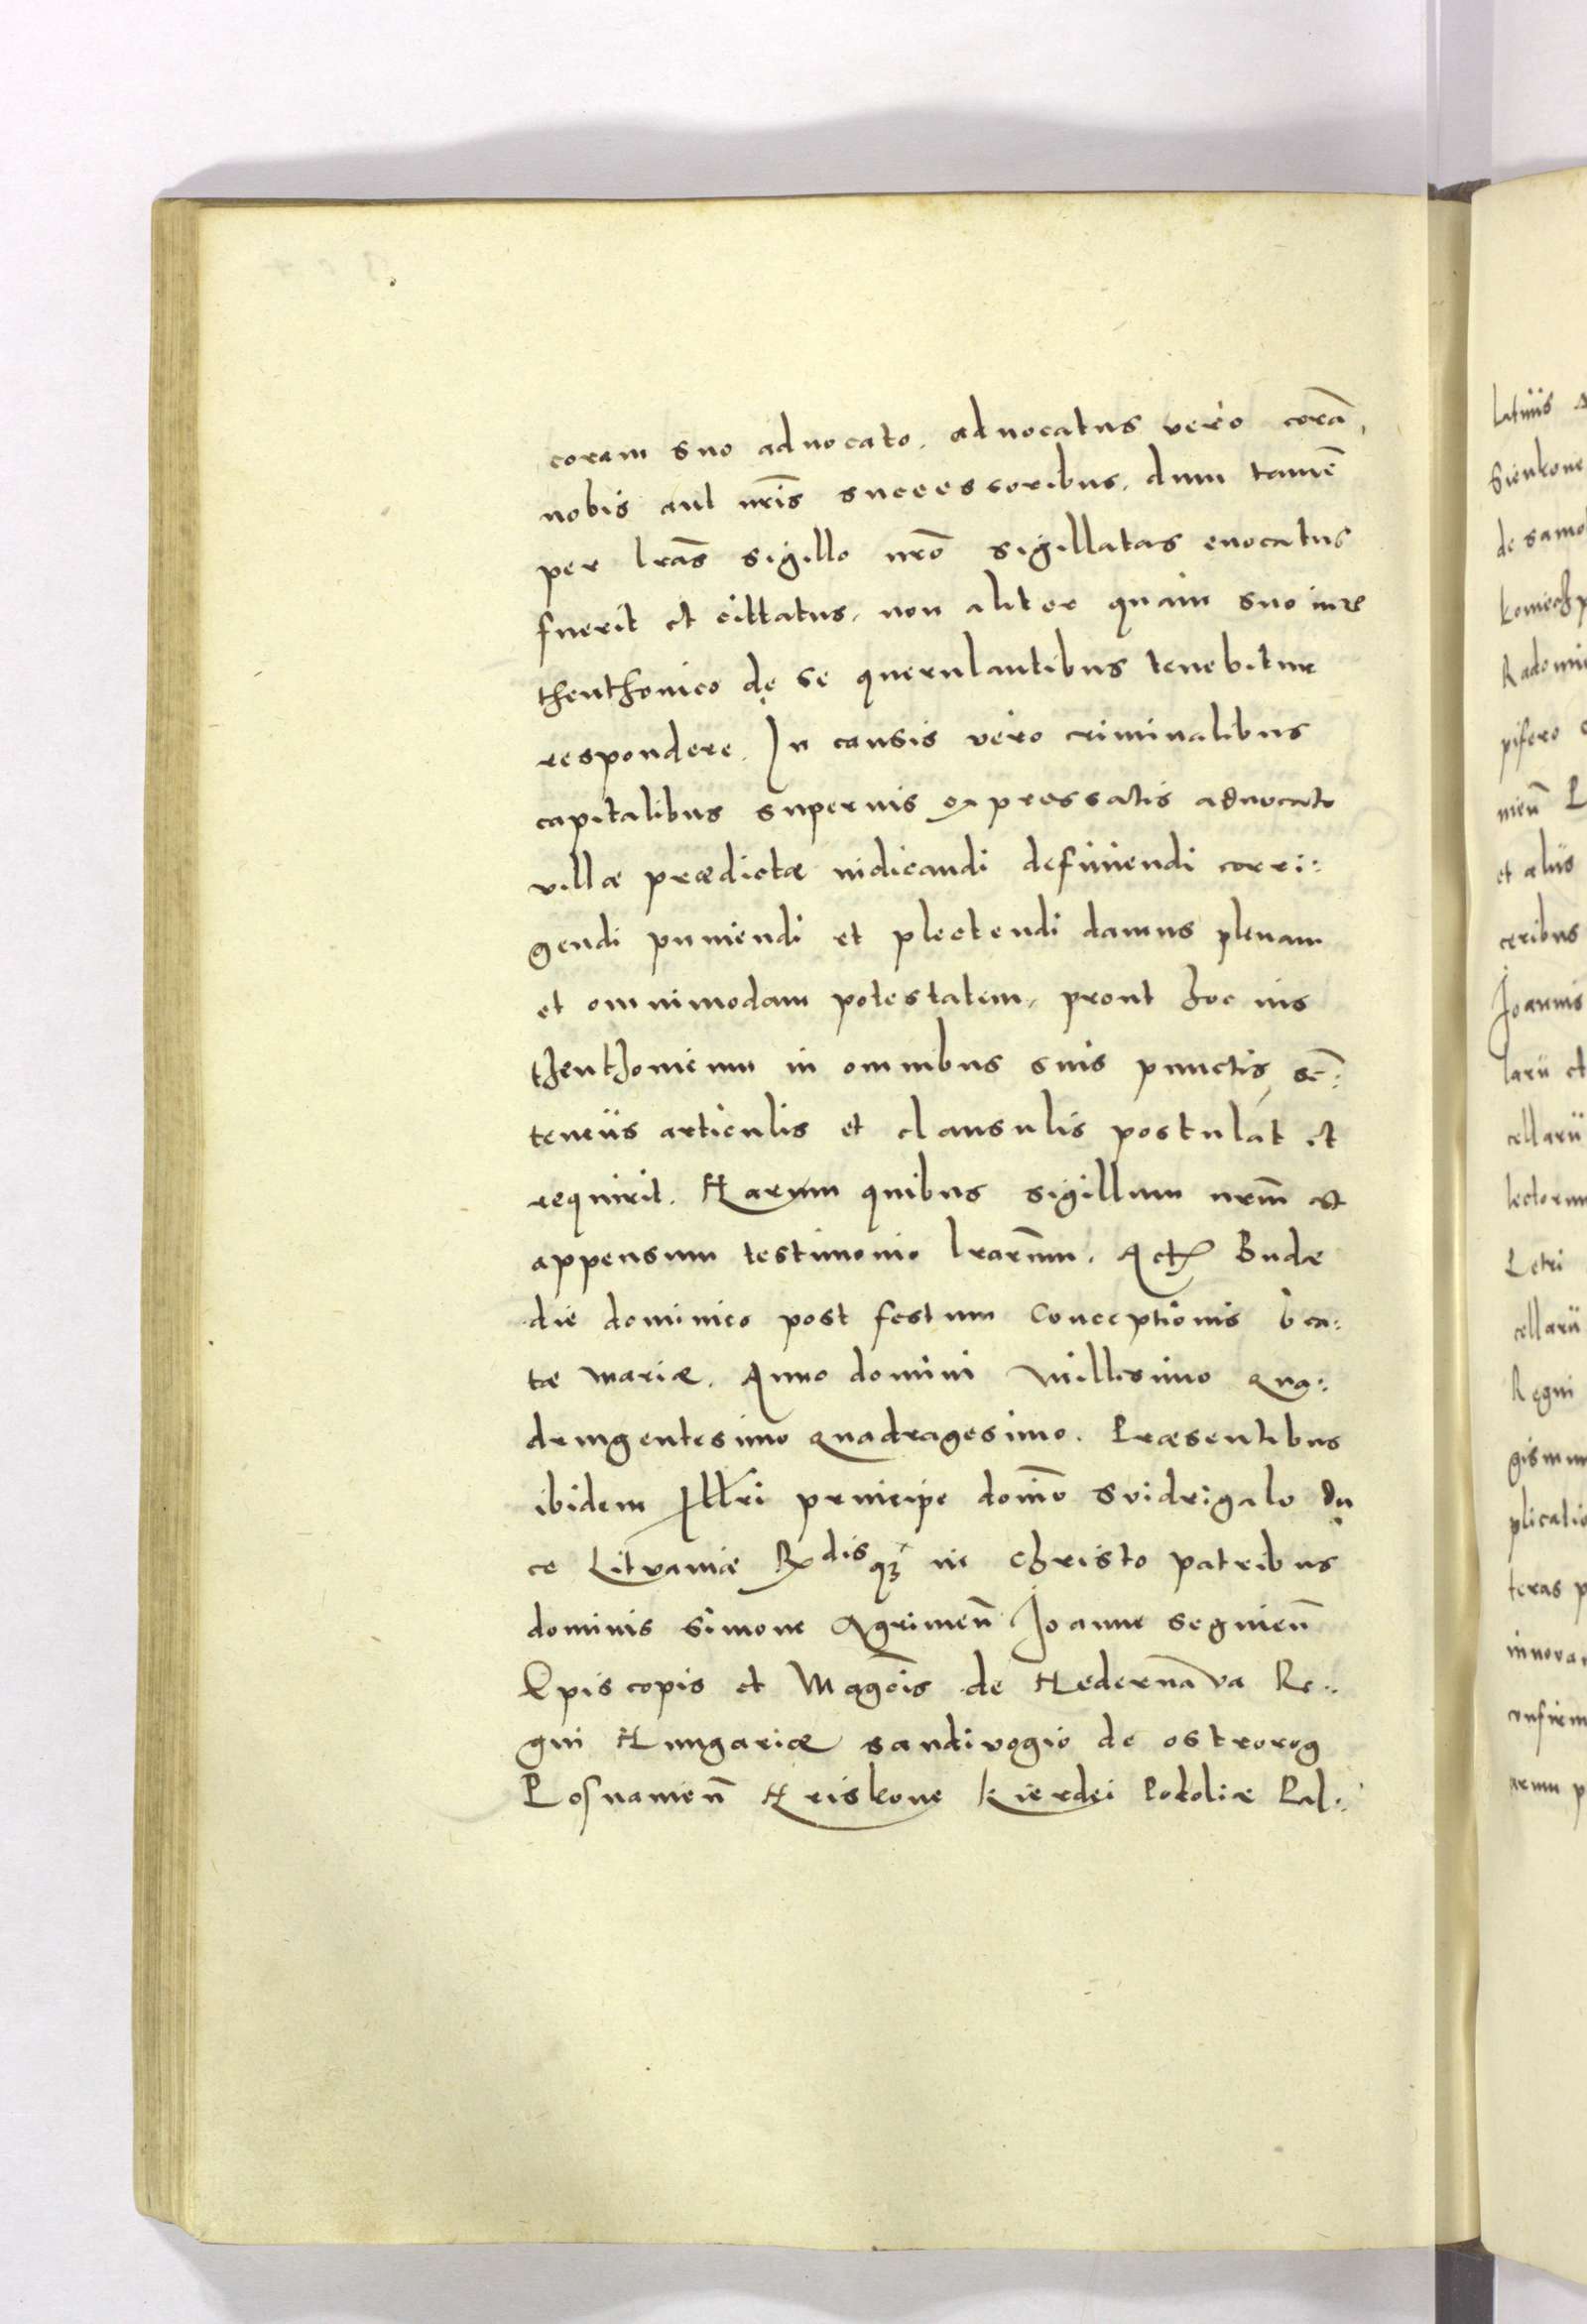 coram suo aduocato. aduocatus vero corã,
nobis aut nrĩs successoribus, dum tamẽ
per lrãs sigillo nrõ sigillatas euocatus
fuerit et cittatus, non aliter quam suo iure
theuthonico de se querulantibus tenebitur
respondere. In causis vero criminalibus
capitalibus superuis expressatis aduocato
villæ prædictæ iudicandi definiendi corri:
gendi puniendi et plectendi damus plenam
et omnimodam potestatem, prout hoc ius
theuthonicum in omnibus suis punctis, sẽ:
tenciis articulis et clausulis postulat et
requirit. Harum quibus sigillum nrm̃ est
appensum testimonio lrarum̃. Act Budæ
die dominico post festum Conceptionis bea:
tæ mariæ. Anno domini millesimo qua:
dringentesimo quadragesimo. Præsentibus
ibidem Illr̃i principe domño Svidrigalo du
ce Litvaniæ Rdisq₃ in christo patribus
dominis Simone Agrimeñ Joanne Segnieñ
Episcopis et Magcis de Hedernãva Re:
gni Hungariæ sandivogio de ostrorog
Posnanieñ Hriskone Kierdei Podoliæ Pal:
latinis
Sienkone
de samo
pifero
nieñ P
et aliis
ceribus
Joannis
larii et
cellarii
lectorum
Petri
cellarii
Regni
gismun
plicatio
teras p
innovar
confirm